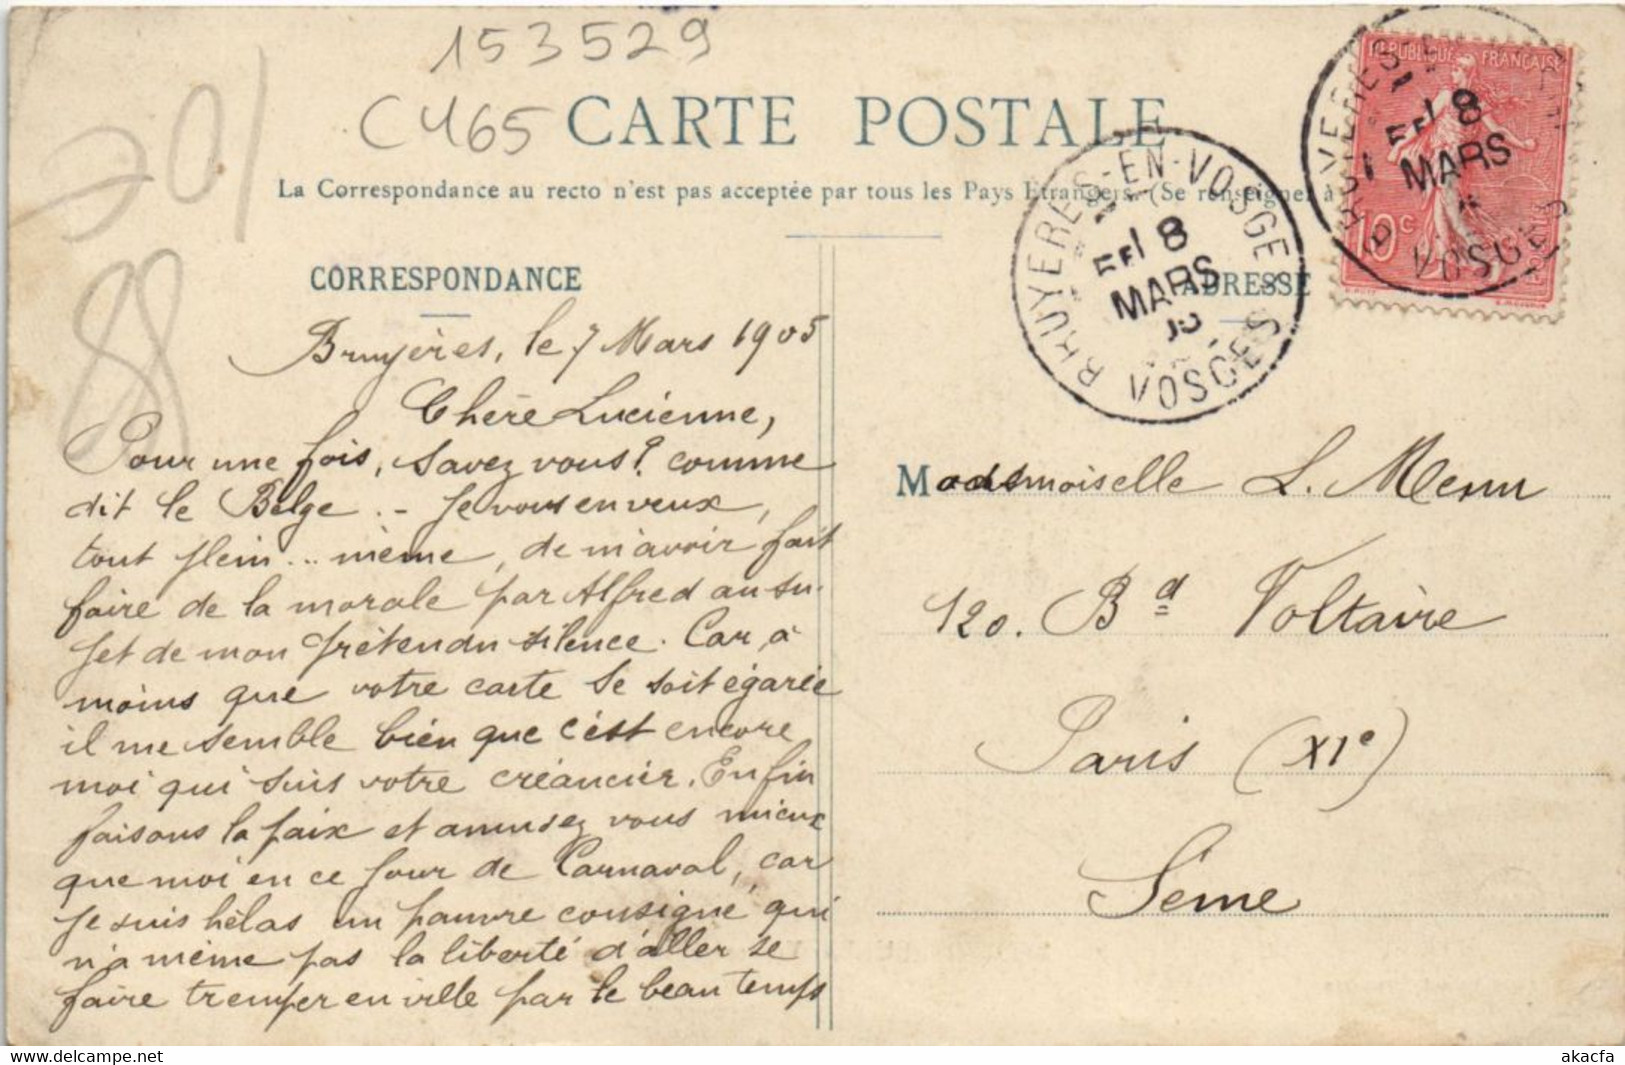 153529
C465
201
88
CARTE POSTALE
La Correspondance au recto n'est pas acceptée par tous les Pays Etrangers. (Se renseigner à
CORRESPONDANCE
ADRESSE
REPUBLIQUE FRANÇAISE
10c
BRUYERES-EN-VOSGES
8
MARS
VOSGES
8
MARS
VOSGES
Bruyères, le 7 Mars 1905
Chère Lucienne,
Pour une fois, savez vous? comme
dit le Belge. - Je vous en veux,
tout plein... même, de m'avoir fait
faire de la morale par Alfred au su-
jet de mon prétendu silence. Car, à
moins que votre carte se soit égarée
il me semble bien que c'est encore
moi qui suis votre créancier. Enfin
faisons la paix et amusez vous mieux
que moi en ce jour de Carnaval, car
je suis hélas un pauvre consigné qui
n'a même pas la liberté d'aller se
faire tremper en ville par le beau temps
Mademoiselle L. Menu
120. Bd Voltaire
Paris (XIe)
Seine
akacfa